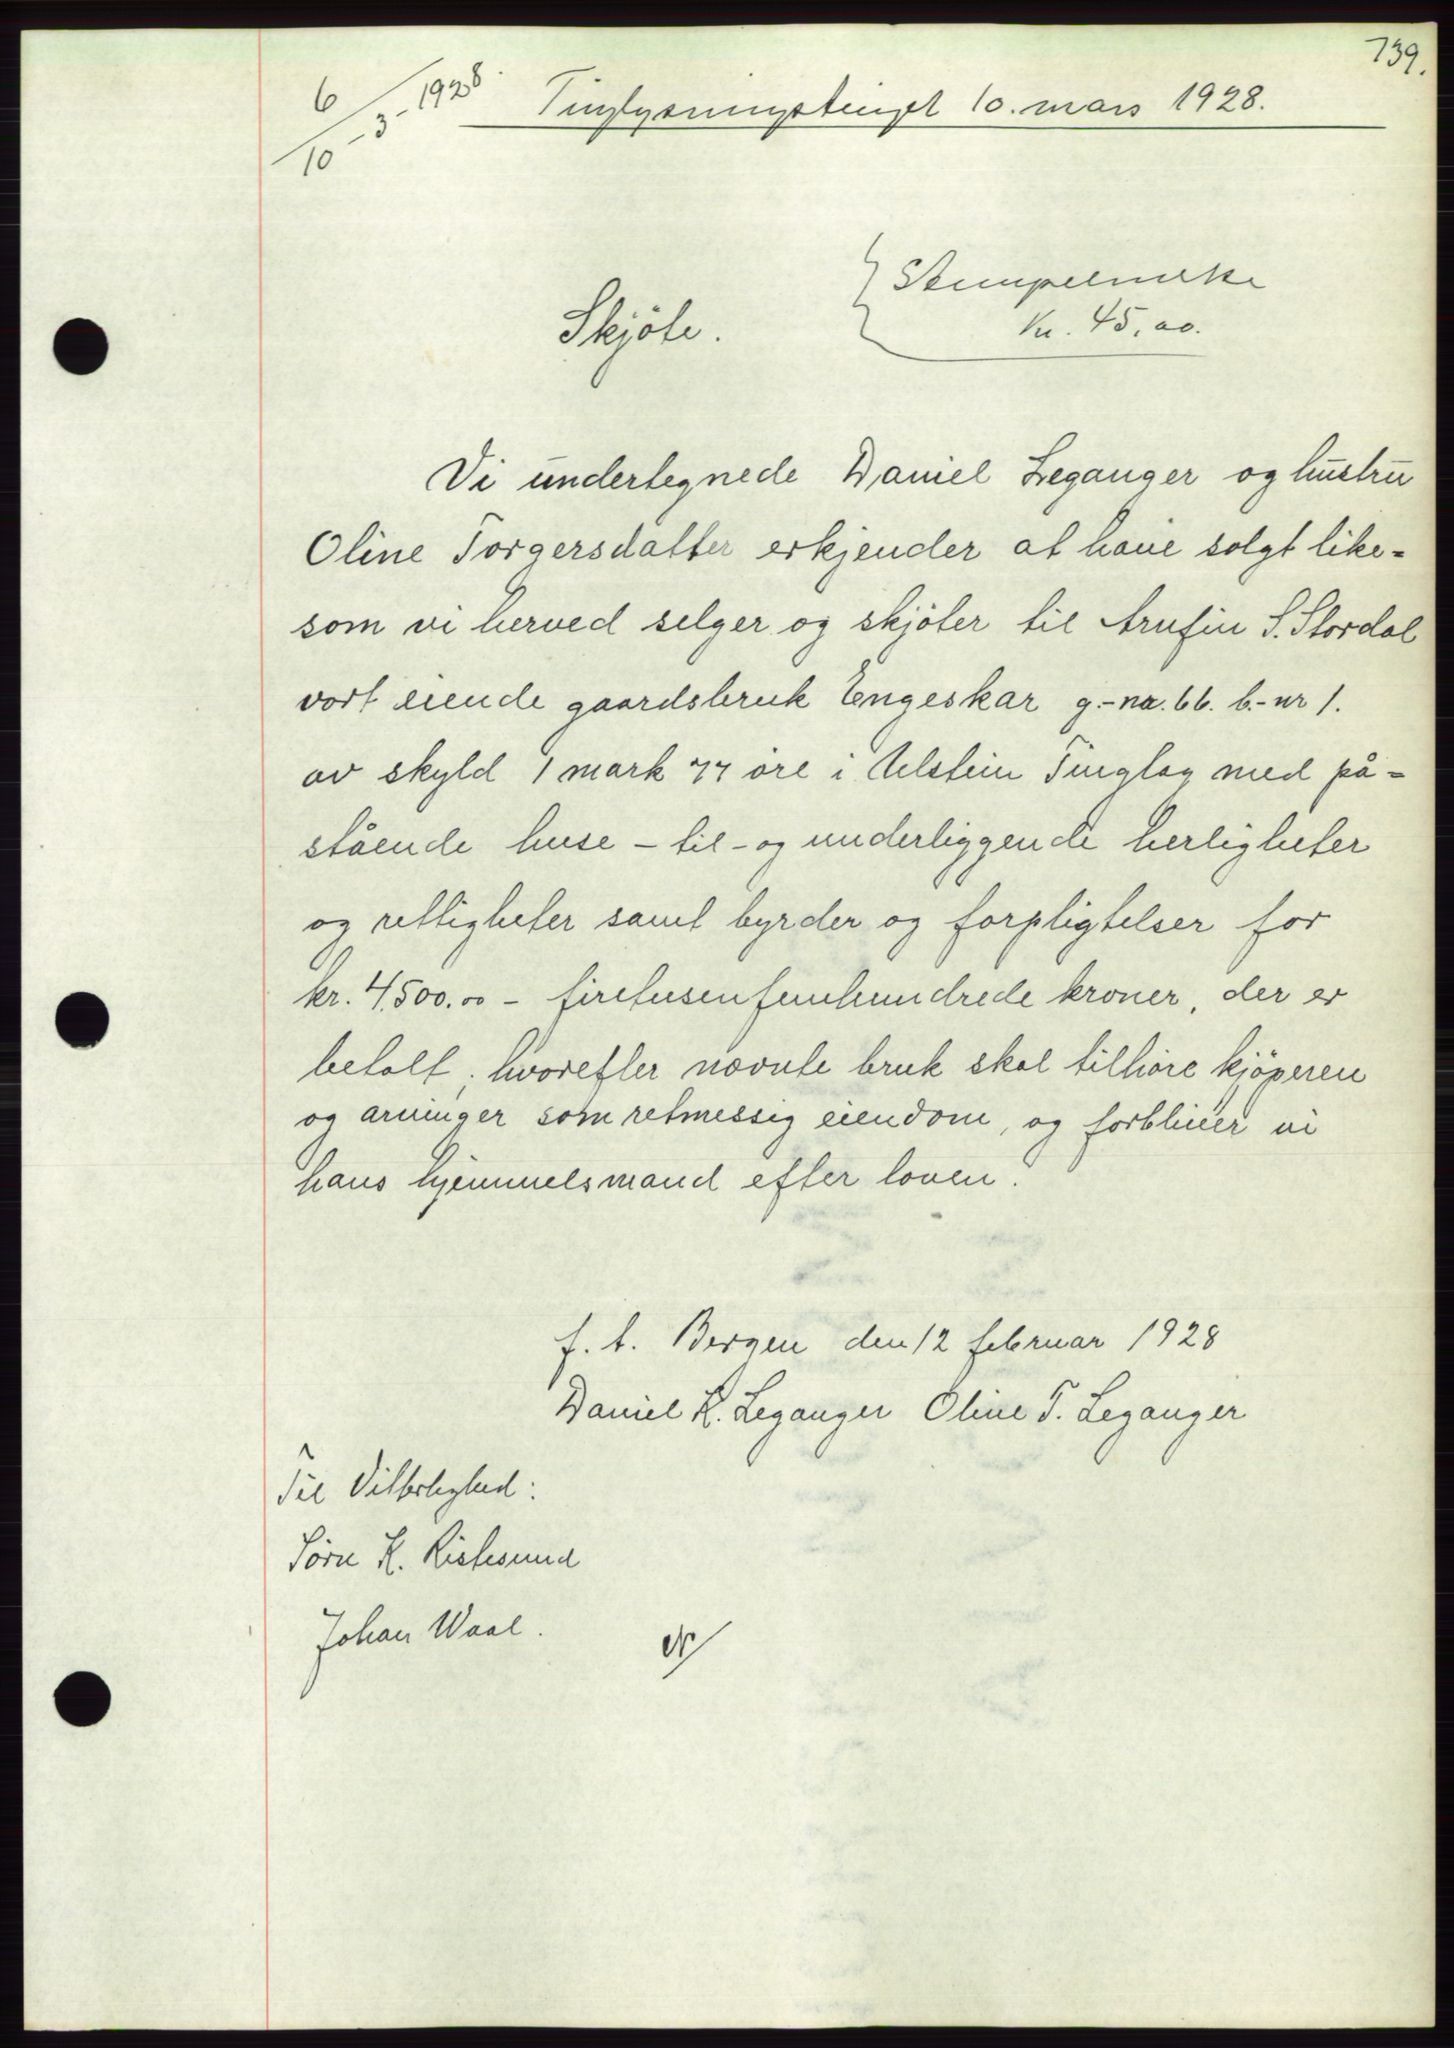 739.
6/10 - 3 - 1928.
Tinglysningstinget 10. mars 1928.
Stempelmerke
Kr. 45,00.
Skjöte.
Vi undertegnede Daniel Leganger og hustru
Oline Torgersdatter erkjender at have solgt like-
som vi herved selger og skjöter til Arnfin S. Stordal
vort eiende gaardsbruk Engeskar g.-nr. 66. b.-nr 1.
av skyld 1 mark 77 öre i Ulstein Tinglag med på-
stående huse - til- og underliggende herligheter
og rettigheter samt byrder og forpligtelser for
kr. 4,500.00 - firetusenfemhundrede kroner, der er
betalt, hvorefter nævnte bruk skal tilhöre kjöperen
og arvinger som retmessig eiendom, og forbliver vi
hans hjemmelsmand efter loven.
f. t. Bergen den 12 februar 1928
Daniel K. Leganger Oline T. Leganger
Til Vitterlighed:
Sörn K. Ristesund
Johan Waal.